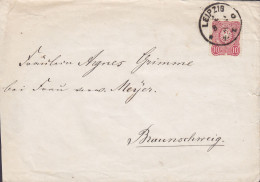 LEIPZIG
10
Fräulein Agnes Grimme
bei Frau Meyer.
Braunschweig.